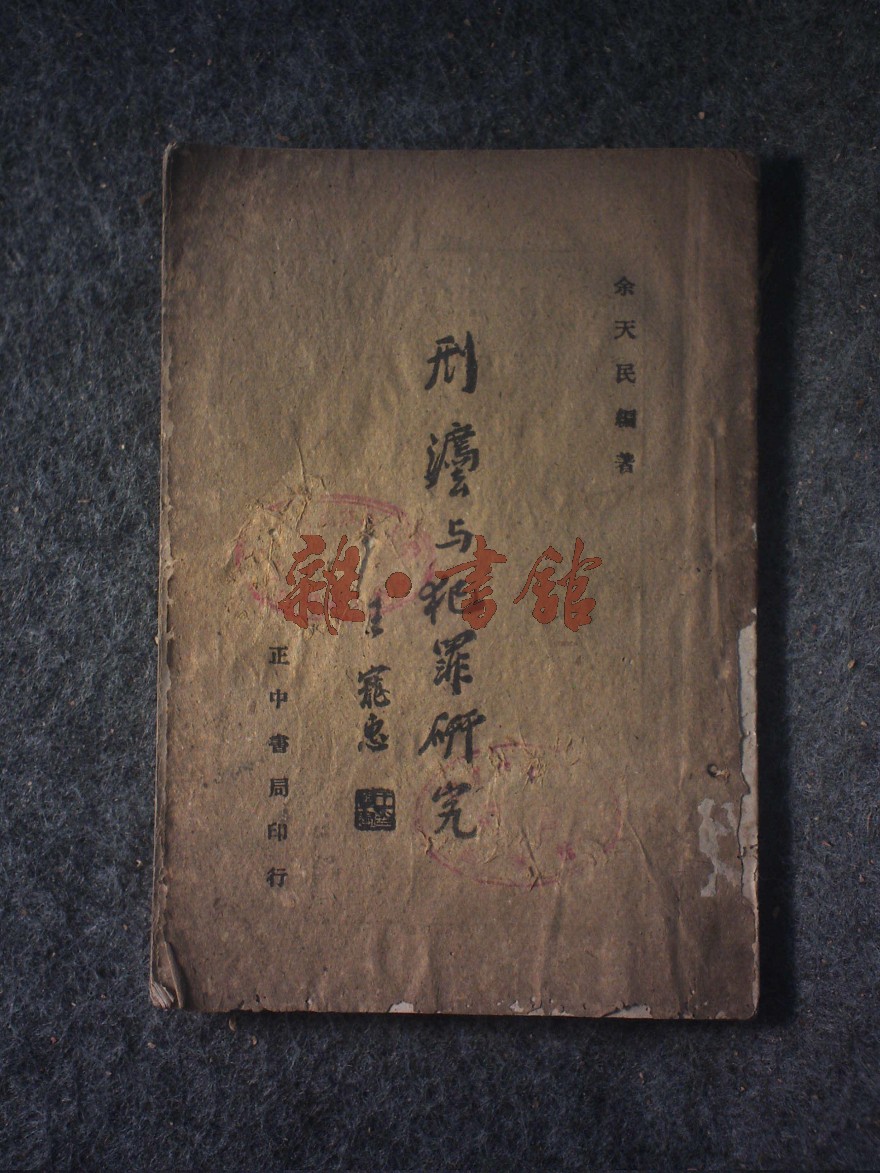 余天民編著
刑灋与犯罪研究
王寵惠
正中書局印行
雜·書館